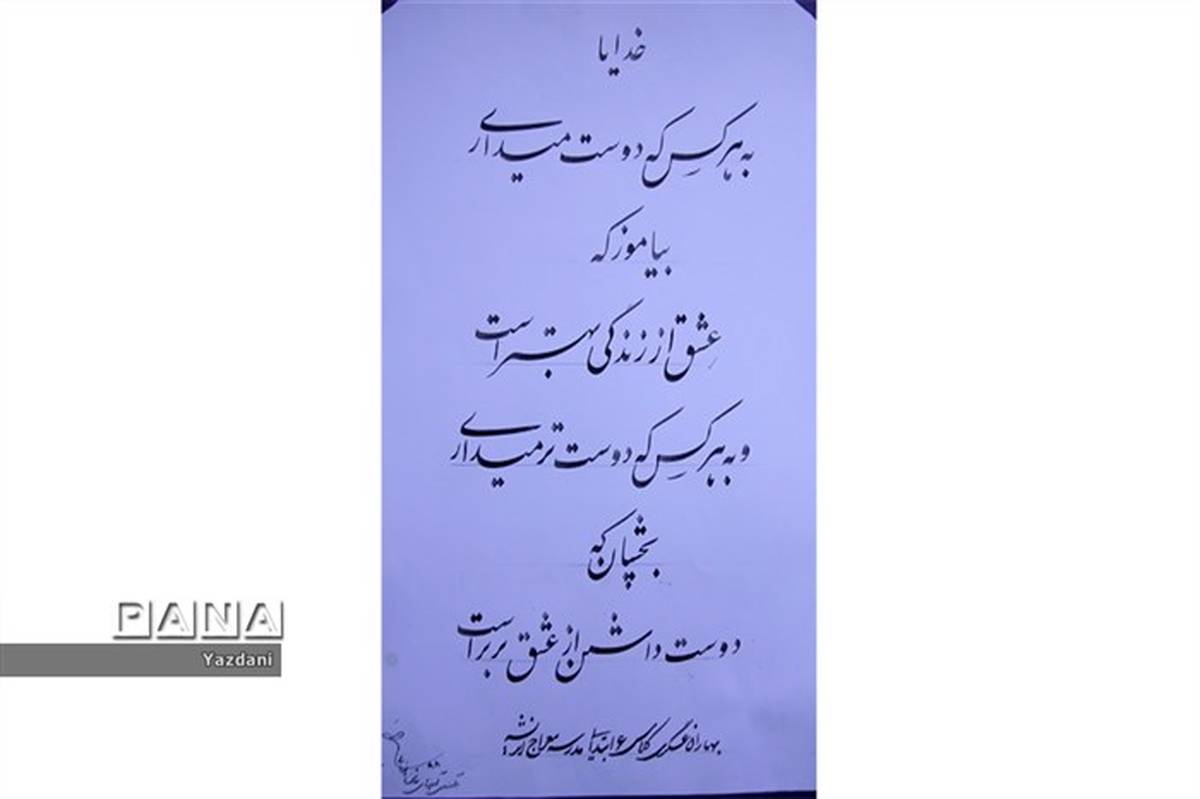 خدایا
به هر کس که دوست میداری
بیاموز که
عشق از زندگی بهتر است
و به هر کس که دوست تر میداری
بچشان که
دوست داشتن از عشق برتر است
کلاس ۶ ابتدایی مدرسه معراج اندیشه
PANA
Yazdani